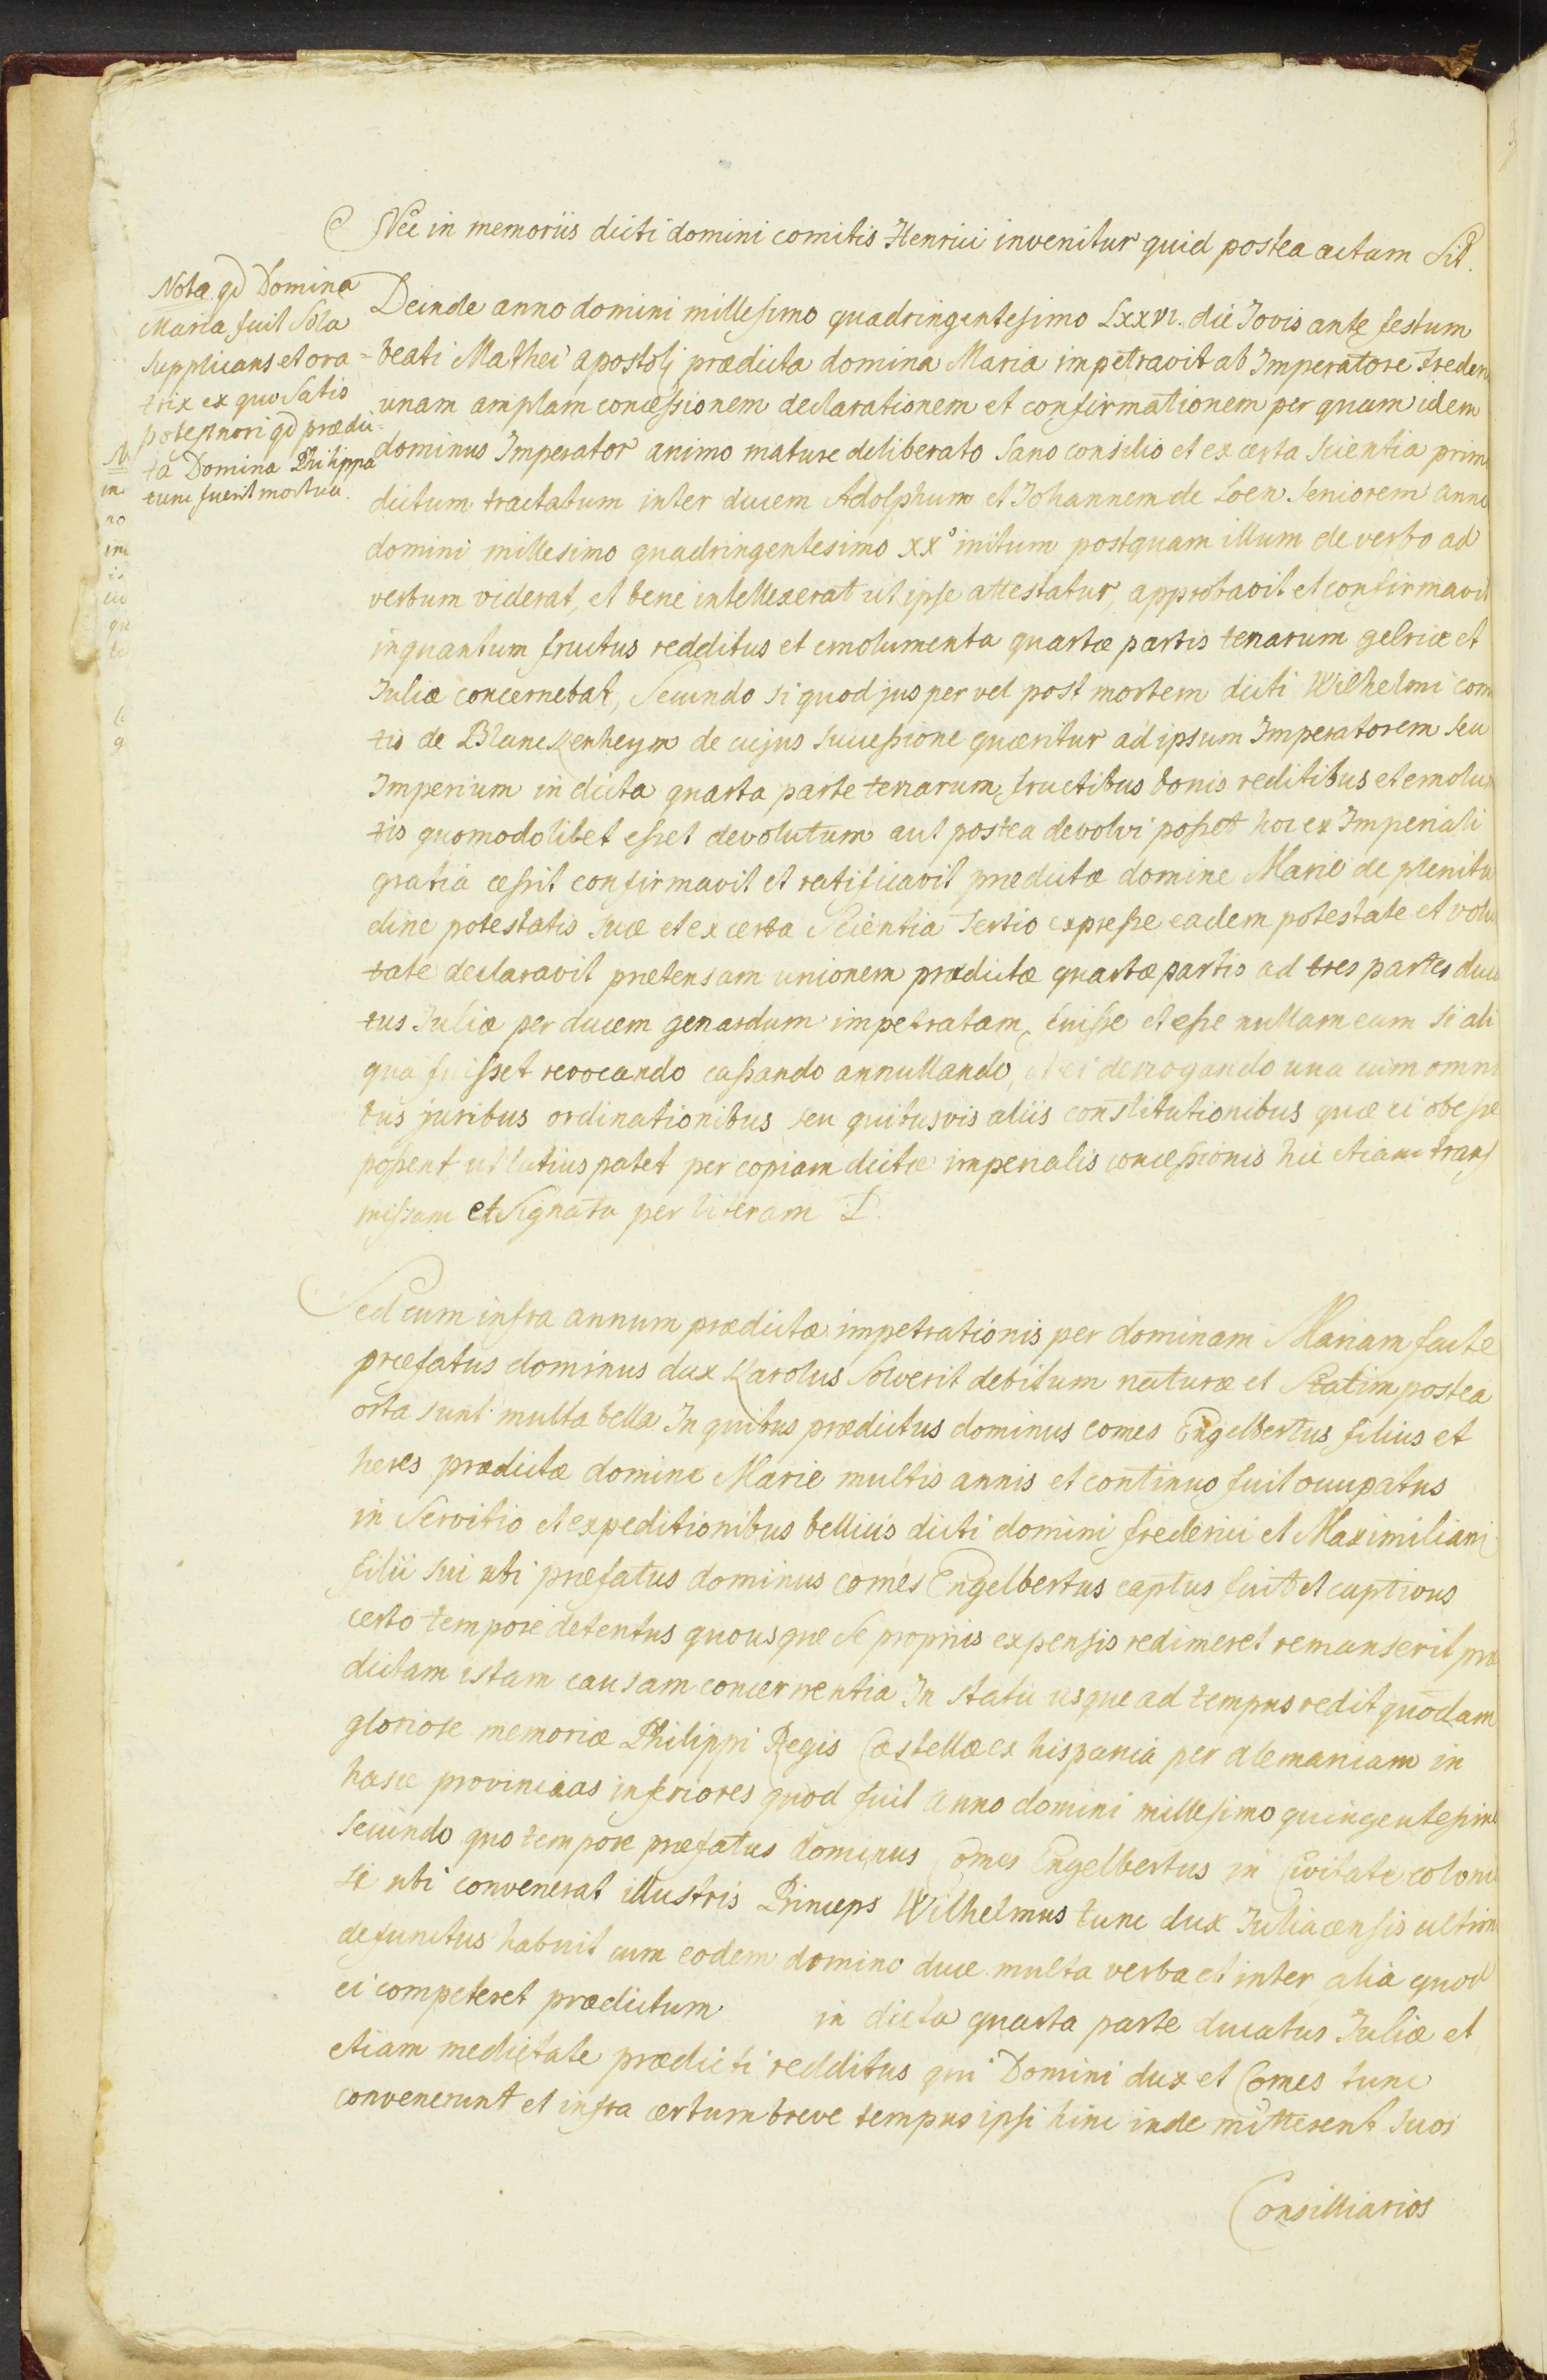 Nec in memoriis dicti domini comitis Henrici invenitur quid postea actum sit.
Nota qd Domina
Maria fuit sola
supplicans et ora=
trix ex quo satis
potest nori qd prædic=
ta Domina Philippa
tunc fuerit mortua.
Deinde anno domini millesimo quadringentesimo Lxxvi. die Jovis ante festum
beati Mathei apostoli prædicta domina Maria impetravit ab Imperatore Frederi
unam amplam concessionem declarationem et confirmationem per quam idem
dominus Imperator animo mature deliberato sano consilio et ex certa scientia prim
dictum tractatum inter ducem Adolphum et Johannem de Loen seniorem anno
domini millesimo quadringentesimo xx° initum postquam illum de verbo ad
verbum viderat, et bene intellexerat ut ipse attestatur, approbavit et confirmavit
inquantum fructus redditus et emolumenta quartæ partis terrarum gelriæ et
Juliæ concernebat, Secundo si quod jus per vel post mortem dicti Wilhelmi com
tis de Blanckenheym de cujus successione quæritur ad ipsum Imperatorem seu
Imperium in dicta quarta parte terrarum fructibus bonis reditibus et emolu
tis quomodolibet esset devolutum aut postea devolvi posset hoc ex Imperiali
gratia cessit confirmavit et ratificavit prædictæ domine Marie de plenitu
dine potestatis suæ et ex certa Scientia Tertio expresse eadem potestate et volu
tate declaravit prætensam unionem prædictæ quartæ partis ad tres partes duca
tus Juliæ per ducem gerardum impetratam, fuisse et esse nullam eam si ali
qua fuisset revocando cassando annullando, et ei derrogando una cum omni
bus juribus ordinationibus seu quibusvis aliis constitutionibus quæ ei obesse
possent ut latius patet per copiam dictæ imperialis concessionis hic etiam trans
missam et signata per literam D.
Sed cum infra annum prædictæ impetrationis per dominam Mariam facte
præfatus dominus dux Karolus solverit debitum naturæ et statim postea
orta sunt multa bella In quibus prædictus dominus comes Engelbertus filius et
heres prædictæ domine Marie multis annis et continuo fuit occupatus
in servitio et expeditionibus bellicis dicti domini frederici et Maximiliani
filii sui ubi præfatus dominus comes Engelbertus captus fuit et captivus
certo tempore detentus quousque se propriis expensis redimeret remanserit præ
dictam istam causam concernentia In statu usque ad tempus redit quodam
gloriose memoriæ Philippi Regis Castellæ ex hispania per alemaniam in
hasce provinciaas inferiores quod fuit anno domini millesimo quingentesimo
secundo quo tempore præfatus dominus Comes Engelbertus in Civitate coloni
se ubi convenerat illustris Princeps Wilhelmus tunc dux Juliacensis ultim
defunctus habuit cum eodem domino duce multa verba et inter alia quod
ei competeret prædictum in dicta quarta parte ducatus Juliæ et
etiam medietate prædicti redditus qui Domini dux et Comes tunc
convenerunt et infra certum breve tempus ipsi hinc inde mitterent suos
Consilliarios